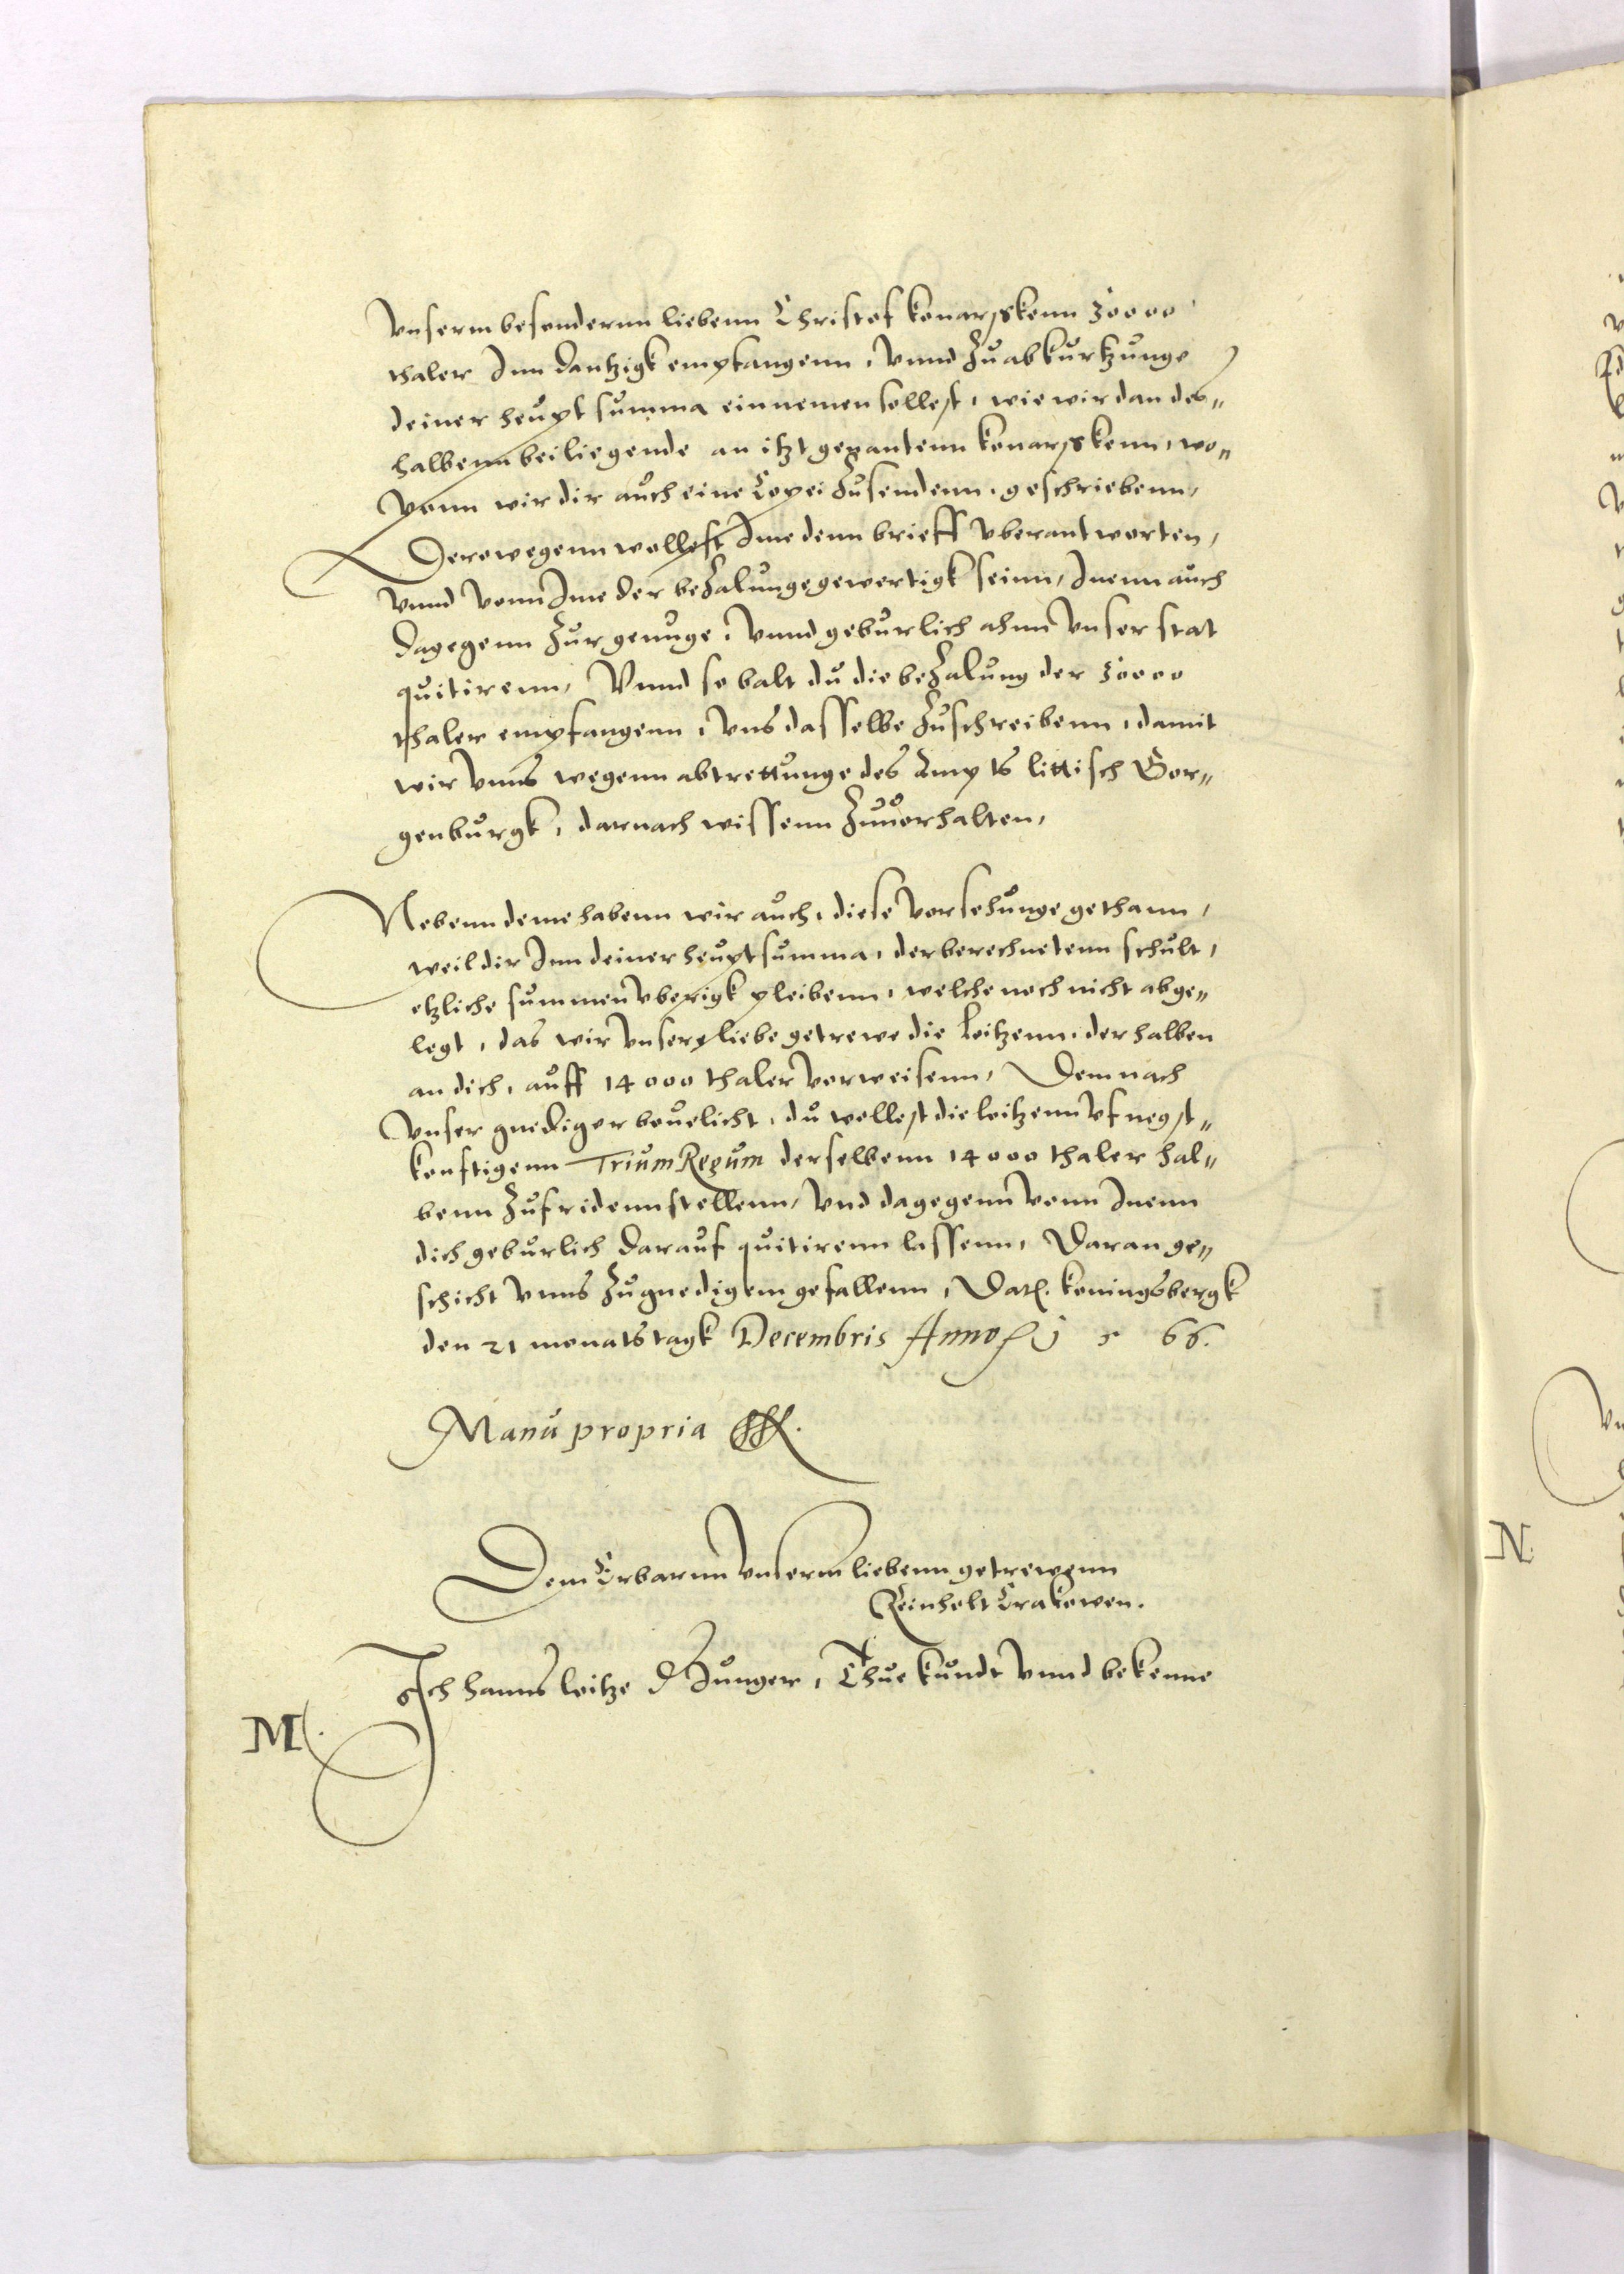 Vnserm besondernn liebenn Christof Konarskenn 30000
thaler Inn Dantzigk empfangenn, Vnnd Zu abkurtzunge
deiner heupt summa einnemen sollest, wie wir dan des„
halbenn beiliegende an itzt genantenn Konarskenn, wo„
vonn wir dir auch eine Copei Zusendenn, geschriebenn,
Derowegenn wollest Ime denn brieff vberantworten,
Vnnd vonn Ime der beZalunge gewertigk seinn, Inenn auch
dagegenn Zur genuge, Vnnd geburlich ahnn Vnser stat
quitirenn, Vnnd so balt du die beZalung der 30000
thaler empfangenn, Vns dasselbe Zuschreibenn, damit
wir Vnns wegenn abtrettunge des Ampts littisch Gor„
genburgk, darnach wissenn Zuuorhalten,
Nebenn deme habenn wir auch, diese Vorsehunge gethann,
weil dir Inn deiner heuptsumma, der berechnetenn schult,
etzliche summen vberigk pleibenn, welche noch nicht abge„
legt, das wir Vnsere liebe getrewe die Loitzenn, derhalben
an dich, auff 14000 thaler Vorweisenn, Demnach
Vnser gnediger beuelicht, du wollest die loitzenn Vf negst„
konftigenn Trium Regum derselbenn 14000 thaler hal„
benn Zufridenn stellenn, Vnd dagegenn Vonn Inenn
dich geburlich darauf quitirenn lassenn, Daran ge„
schicht Vnns Zu gnedigem gefallenn, Dat. Koningsbergk
den 21 monats tagk Decembris Anno 66.
Manu propria
Dem Erbarnn Vnserm liebenn getrewenn
Reinholt Crakowen.
Ich hanns loitze d Junger, Thue kundt Vnnd bekenne
M.
N.